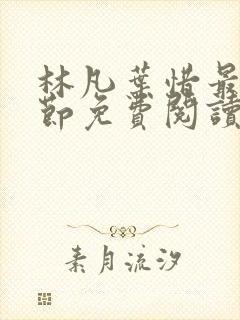 林凡葉惜最
節免費閱讀
素月流汐